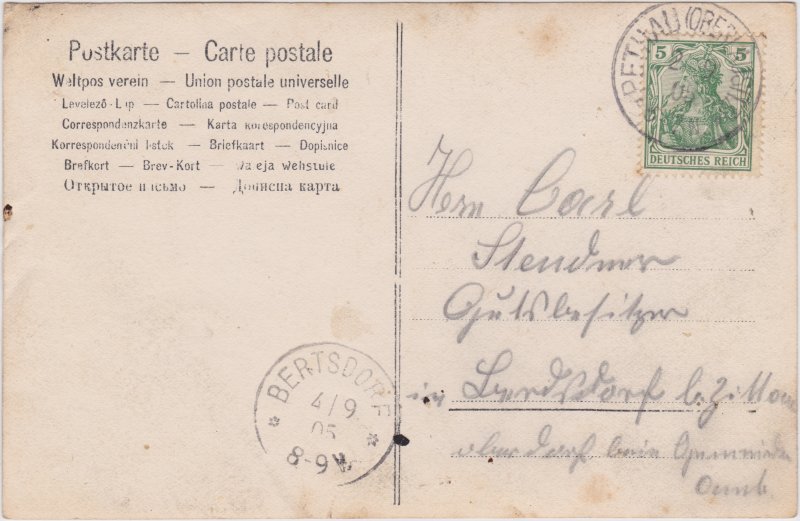 Postkarte — Carte postale
Weltpos verein — Union postale universelle
Levelező-L p — Cartolina postale — Post card
Correspondenzkarte — Karta korespondencyjna
Korrespondenční l stek — Briefkaart — Dopisnice
Brefkort — Brev-Kort — Wehstule
Открытое письмо — Дописна карта
5 5
DEUTSCHES REICH
Herrn Carl
Stendner
Gutsbesitzer
in Berdsdorf b. Zittau
oberdorf beim Gemeinde
Amt.
BERTSDORF
4/9
05
8-9 V.